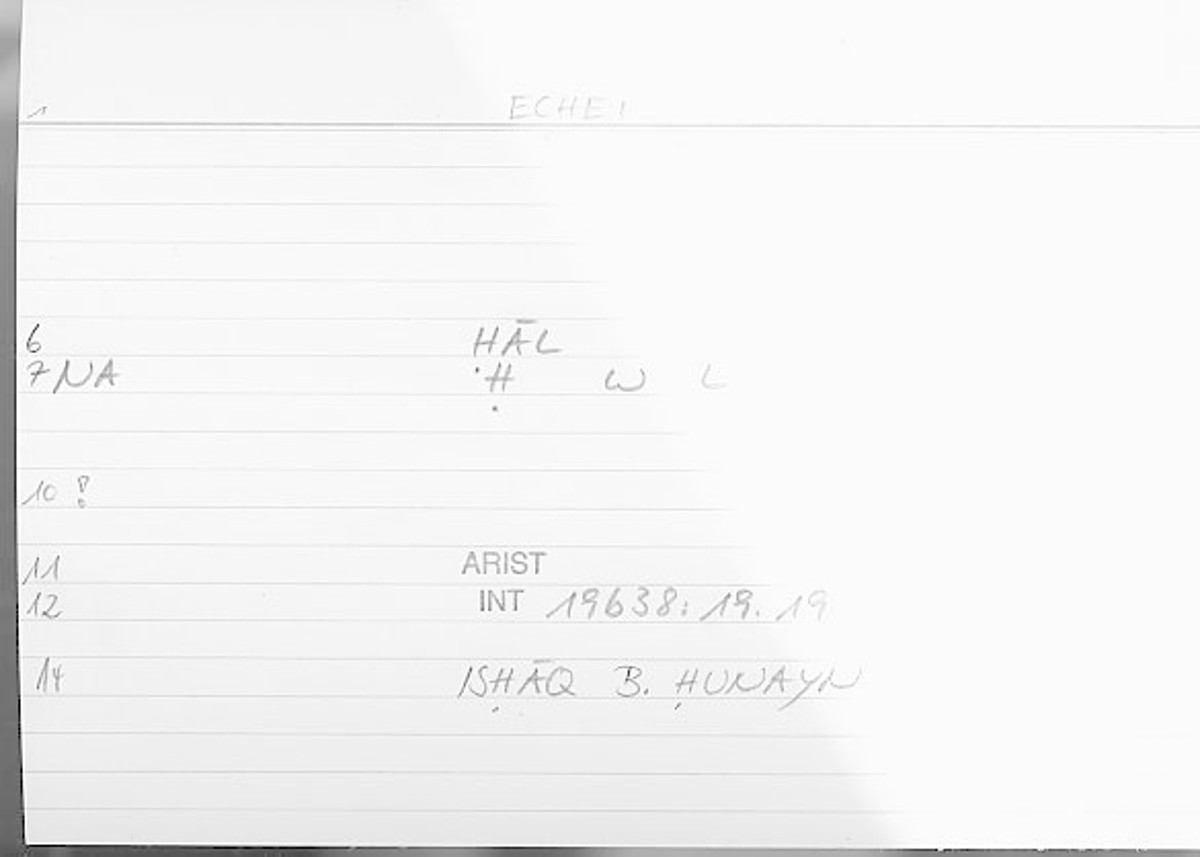 1 ECHEI
6 ḤĀL
7 NA Ḥ W L
10 !
11 ARIST
12 INT 19638:19.19
14 ISḤĀQ B. ḤUNAYN